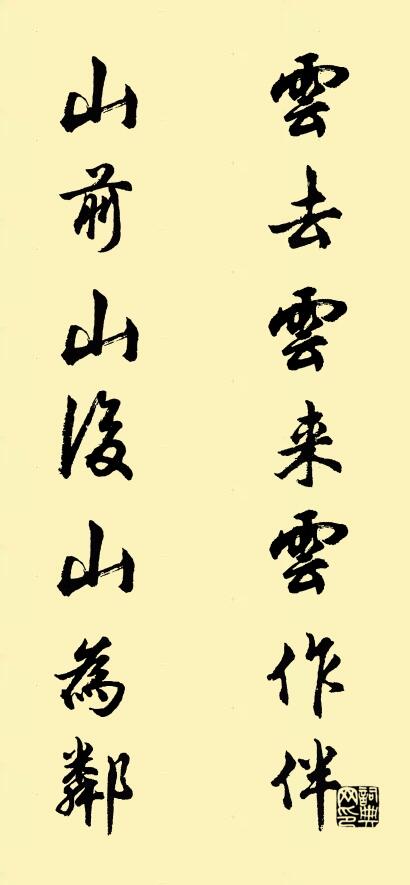 雲去雲来雲作伴
山前山後山為鄰
詞典网印